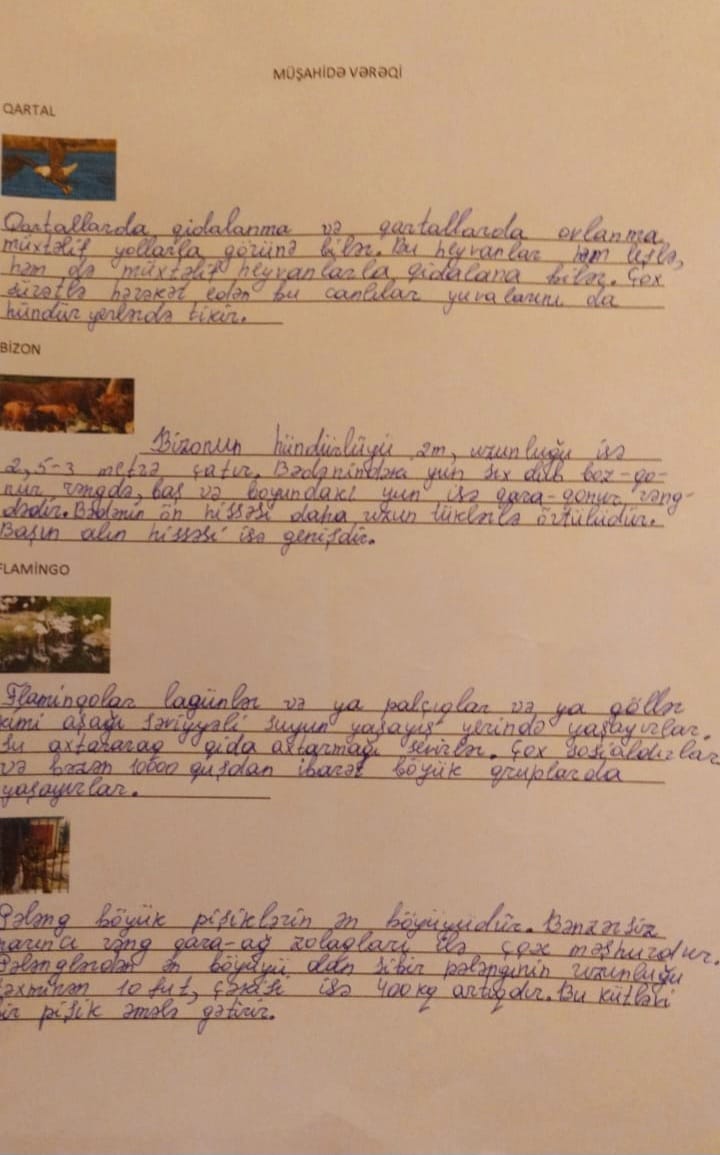 MÜŞAHİDƏ VƏRƏQİ
QARTAL
Qartallarda qidalanma və qartallarda ovlanma
müxtəlif yollarla görünə bilər. Bu heyvanlar həm leşlə,
həm də müxtəlif heyvanlarla qidalana bilər. Çox
sürətlə hərəkət edən bu canlılar yuvalarını da
hündür yerlərdə tikir.
BİZON
Bizonun hündürlüyü 2m, uzunluğu isə
2,5-3 metrə çatır. Bədənindəki yun sıx olub boz-qo-
nur rəngdə, baş və boyundakı yun isə qara-qonur rəng-
dədir. Bədənin ön hissəsi daha uzun tüklərlə örtülüdür.
Başın alın hissəsi isə genişdir.
FLAMİNGO
Flamingolar lagünlər və ya palçıqlar və ya göllər
kimi aşağı səviyyəli suyun yaşayış yerində yaşayırlar.
Su axtararaq qida axtarmağı sevirlər. Çox sosialdırlar
və bəzən 10000 quşdan ibarət böyük qruplarda
yaşayırlar.
Pələng böyük pişiklərin ən böyüyüdür. Bənzərsiz
narıncı rəng qara-ağ zolaqları ilə çox məşhurdur.
Pələnglərdən ən böyüyü olan sibir pələnginin uzunluğu
təxminən 10 fut, çəkisi isə 400kg artıqdır. Bu kütləvi
bir pişik əmələ gətirir.